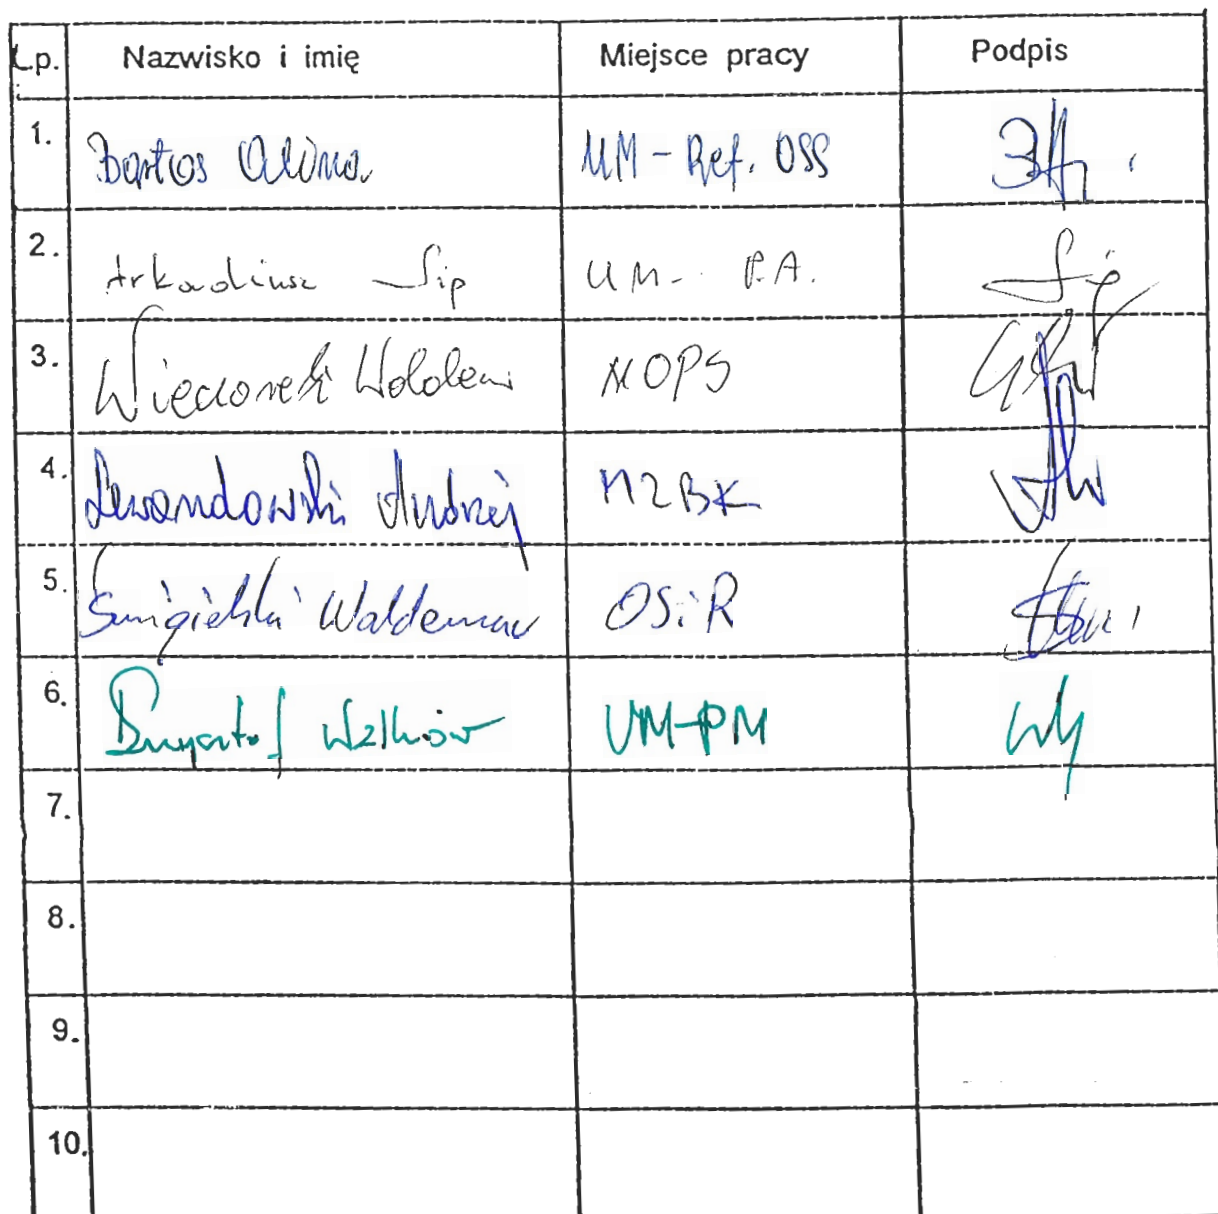 Lp. Nazwisko i imię Miejsce pracy Podpis
1. Bartos Alina UM - Ref. OSS
2. Arkadiusz Sip UM - P.A. Sip
3. MOPS
4. Lewandowski Andrzej MZBK
5. Śmigielski Waldemar OSiR
6. Krzysztof UM-PM
7.
8.
9.
10.